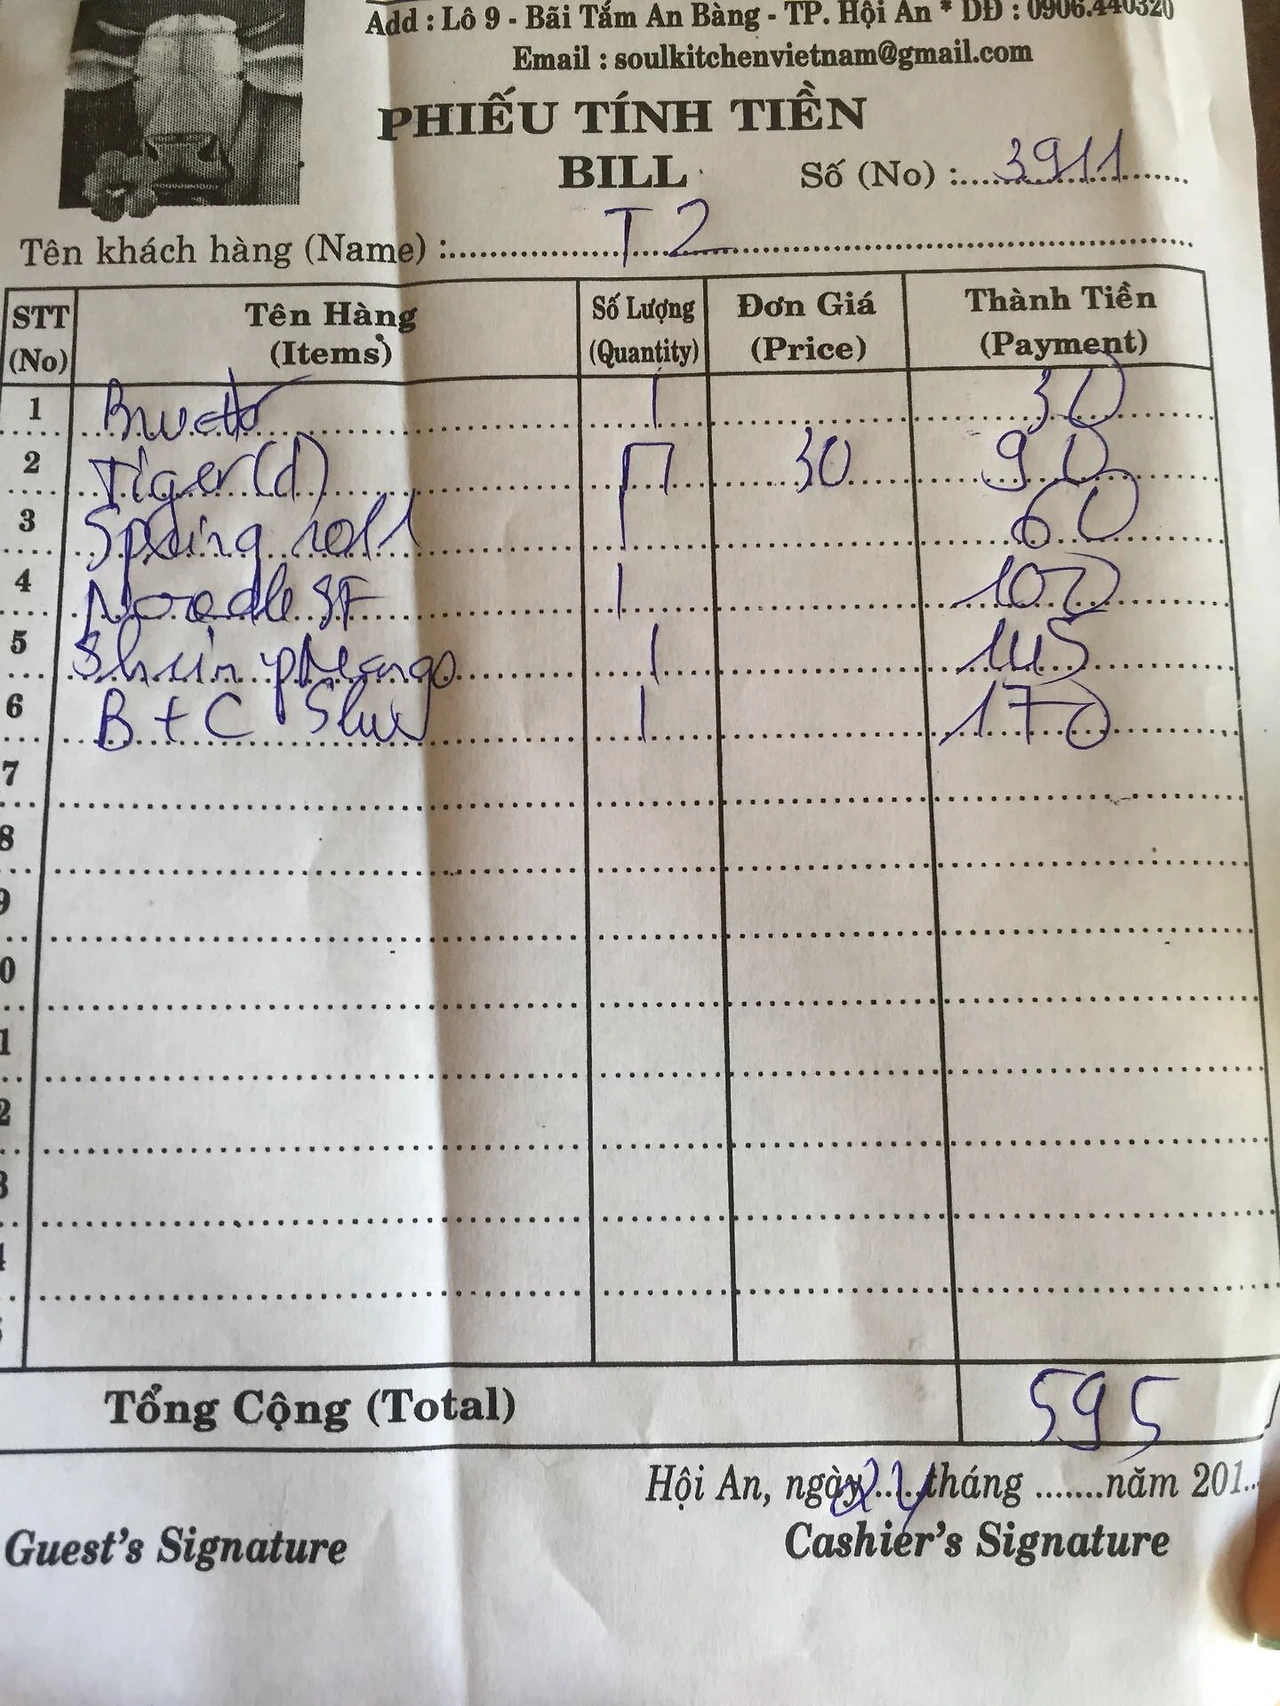 Add : Lô 9 - Bãi Tắm An Bàng - TP. Hội An * DĐ : 0906.440320
Email : soulkitchenvietnam@gmail.com
PHIẾU TÍNH TIỀN
BILL
Số (No) : 3911
Tên khách hàng (Name) : T2
STT (No) Tên Hàng (Items) Số Lượng (Quantity) Đơn Giá (Price) Thành Tiền (Payment)
1 1 30
2 Tiger (d) 30 90
3 Spring roll 1 60
4 Noodle SF 1 100
5 1 145
6 B + C 1 170
7
8
9
0
1
2
3
4
Tổng Cộng (Total) 595
Hội An, ngày 24 tháng ....... năm 201..
Guest's Signature Cashier's Signature